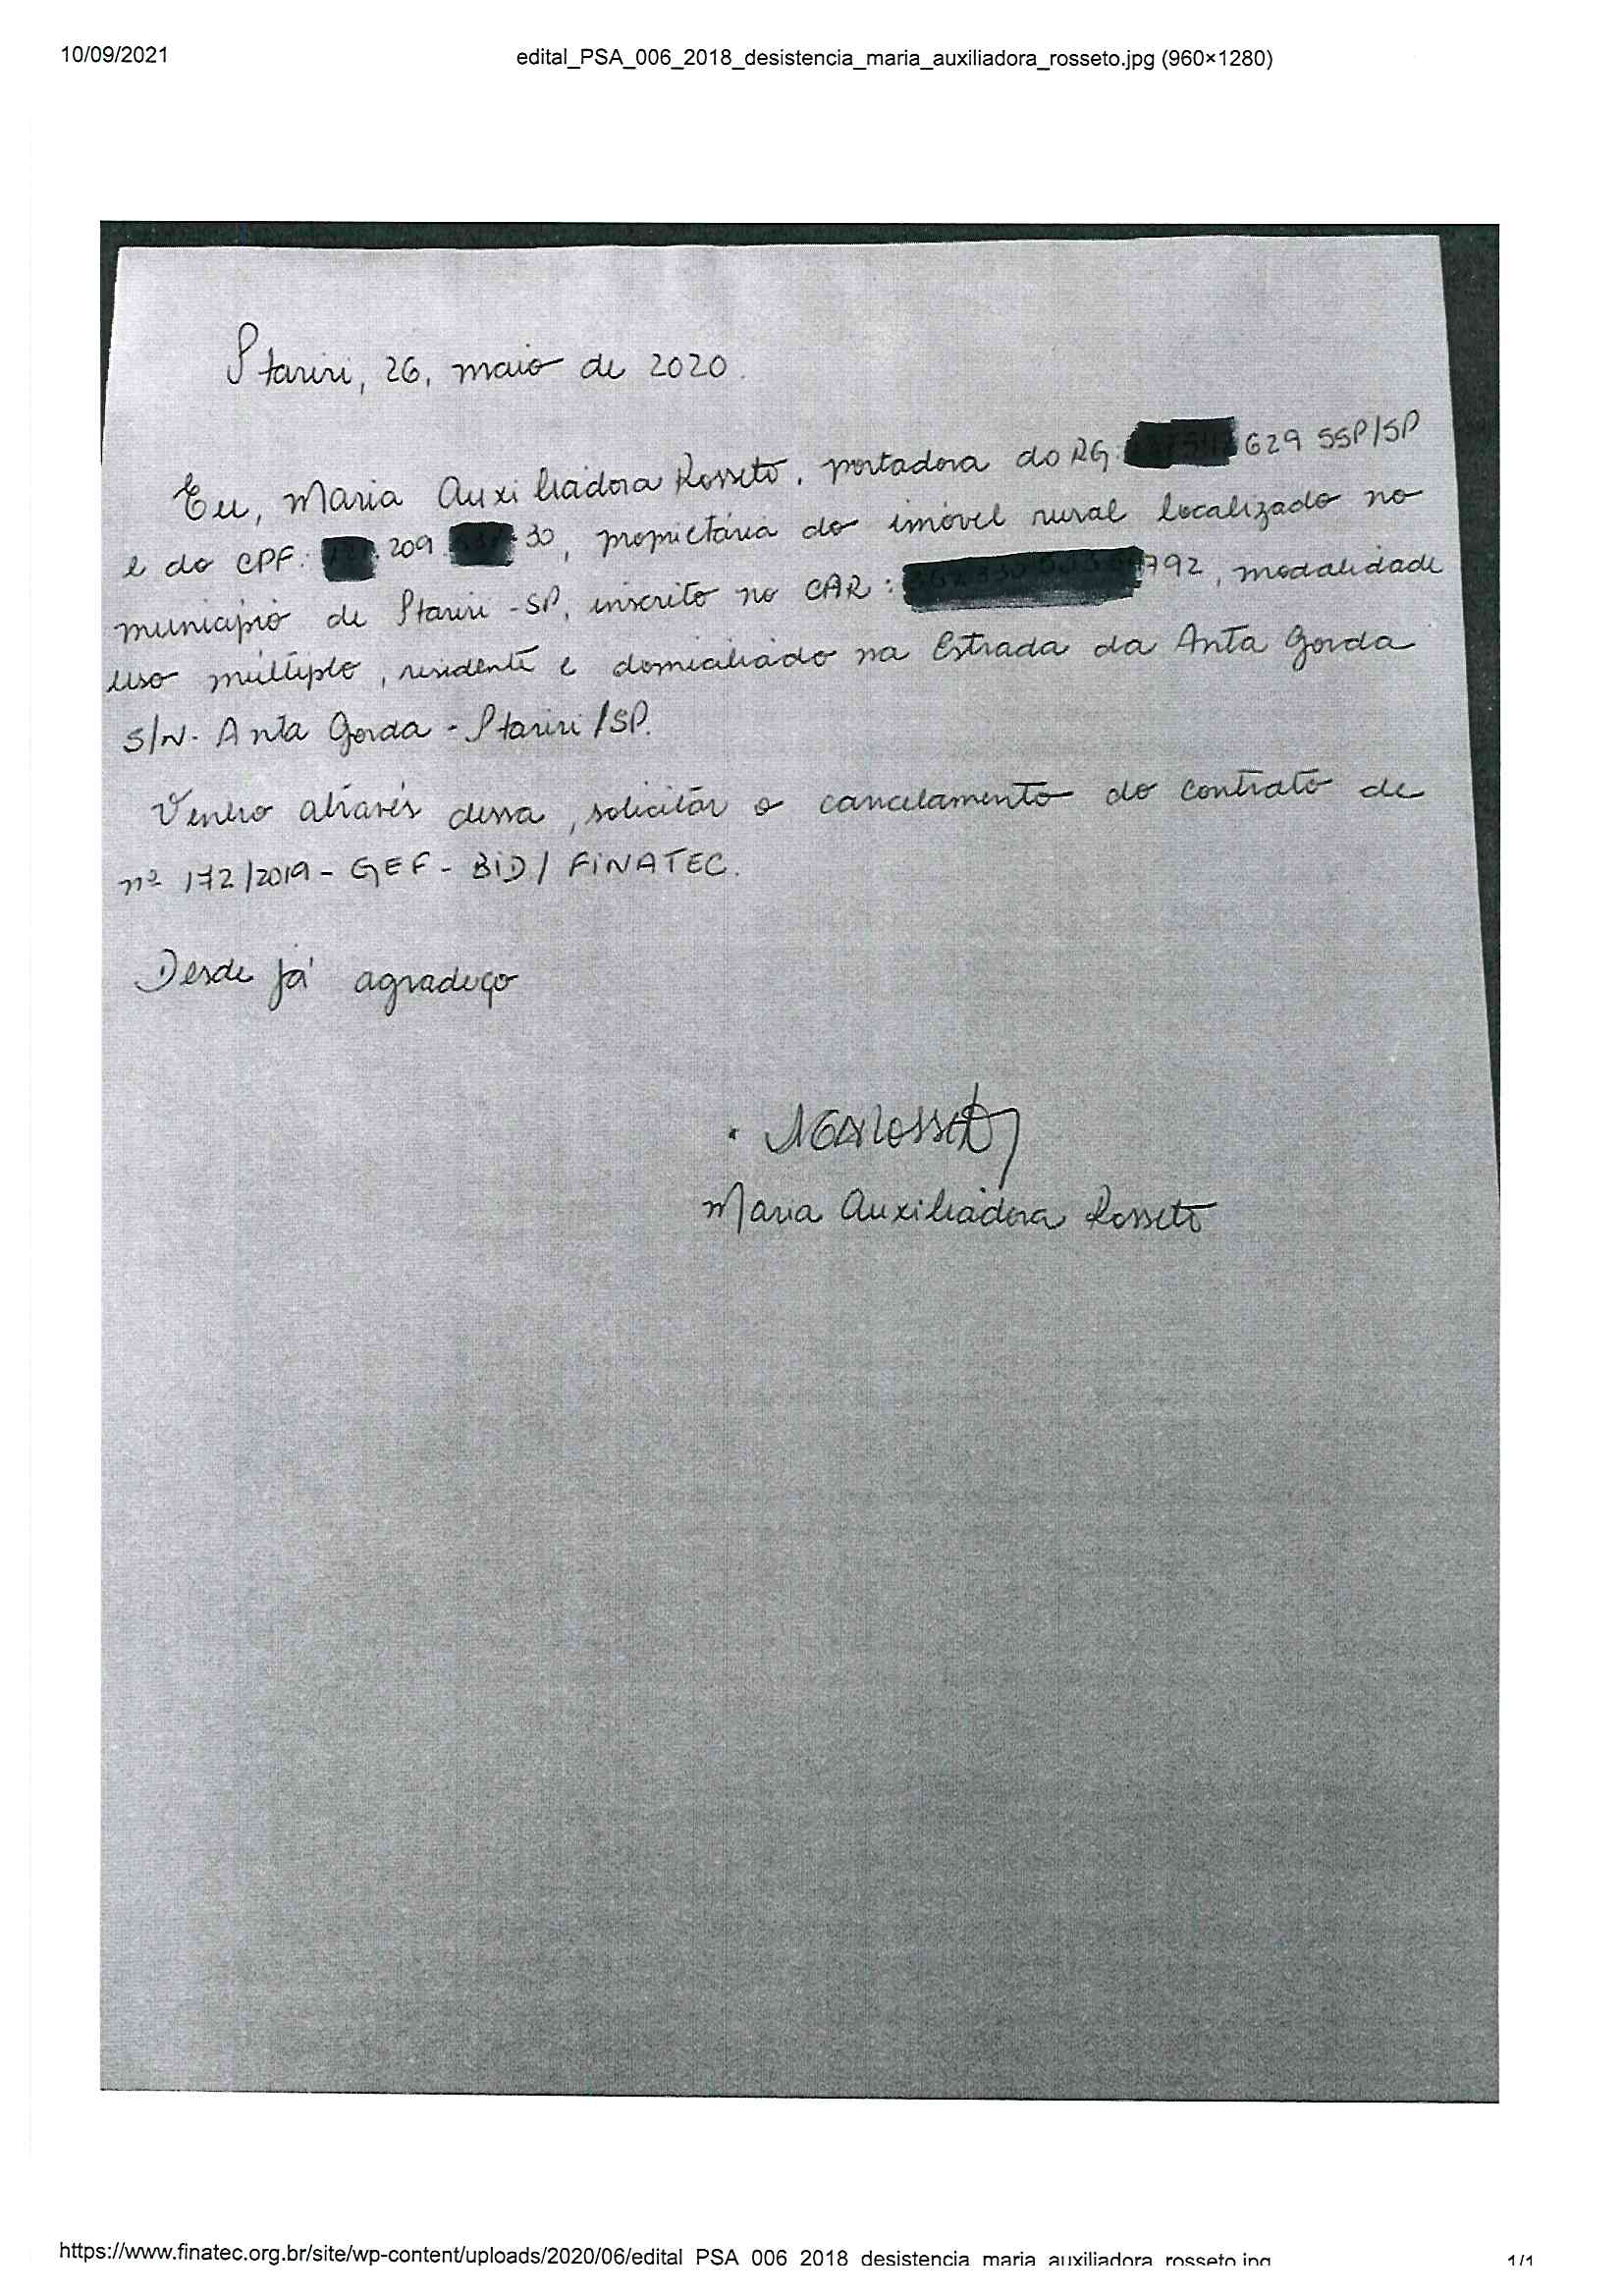 10/09/2021 edital_PSA_006_2018_desistencia_maria_auxiliadora_rosseto.jpg (960×1280)
Itariri, 26, maio de 2020.
Eu, Maria Auxiliadora Rosseto, portadora do RG: 629 SSP/SP
e do CPF: .209. 30, proprietária do imóvel rural localizado no
município de Itariri - SP, inscrito no CAR: 792, modalidade
uso múltiplo, residente e domiciliado na Estrada da Anta Gorda
S/N. Anta Gorda - Itariri/SP.
Venho através dessa, solicitar o cancelamento do contrato de
nº 172/2019 - GEF - BID / FINATEC.
Desde já agradeço
Maria Auxiliadora Rosseto
https://www.finatec.org.br/site/wp-content/uploads/2020/06/edital_PSA_006_2018_desistencia_maria_auxiliadora_rosseto.jpg 1/1